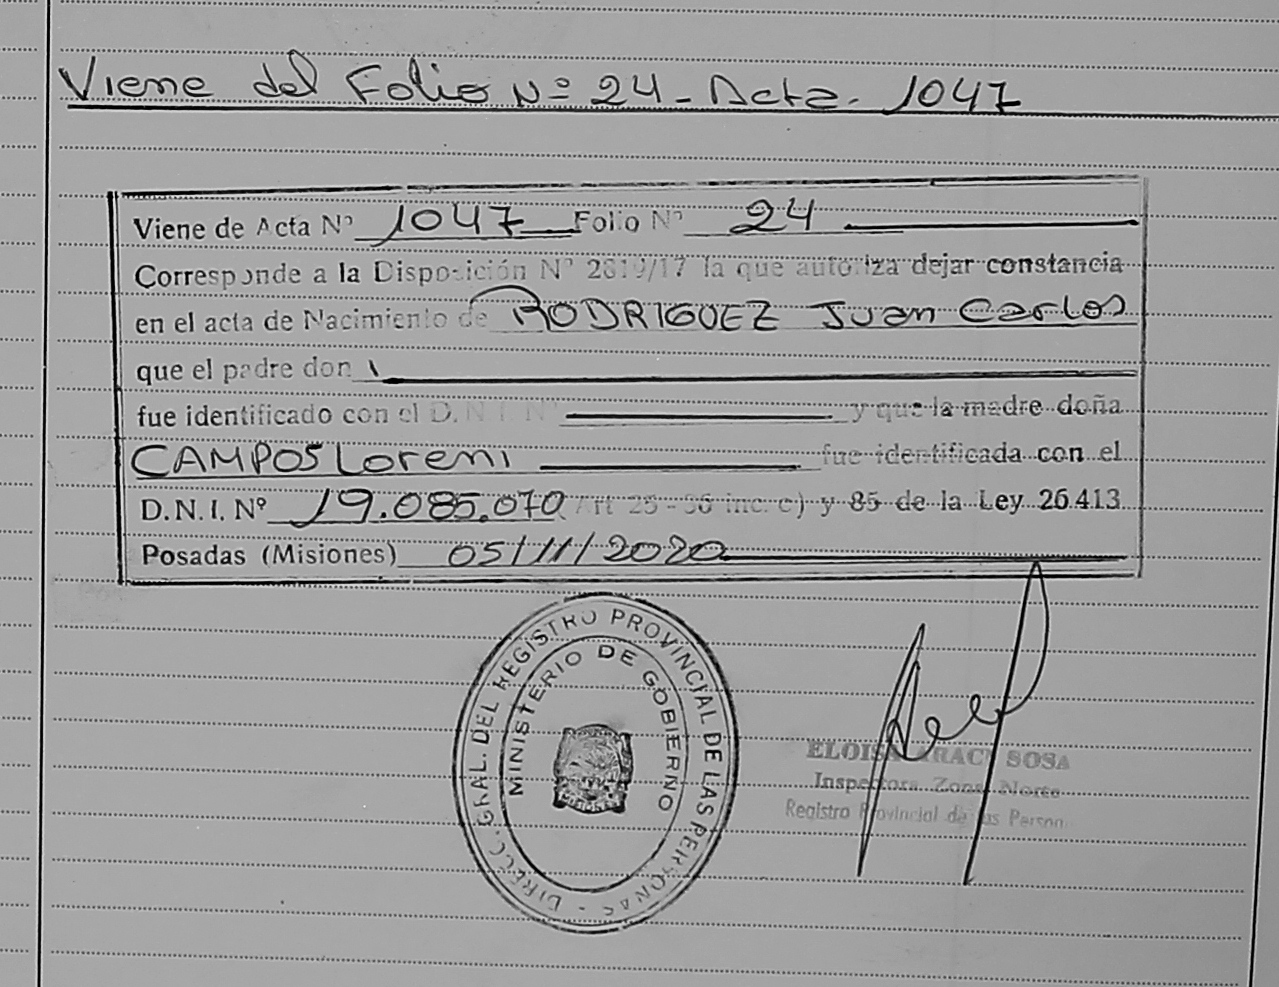 Viene del Folio Nº 24 - Acta. 1047
Viene de Acta Nº 1047 Folio Nº 24
Corresponde a la Disposición Nº 2819/17 la que autoriza dejar constancia
en el acta de Nacimiento de RODRIGUEZ Juan Carlos
que el padre don
fue identificado con el D.N.I. Nº y que la madre doña
CAMPOS Loreni fue identificada con el
D.N.I. Nº 19.085.070 (Art 25 - 36 inc. c) y 85 de la Ley 26.413
Posadas (Misiones) 05/11/2020
DIRECC. GRAL. DEL REGISTRO PROVINCIAL DE LAS PERSONAS -
MINISTERIO DE GOBIERNO
ELOISA ARACY SOSA
Inspectora Zona Norte
Registro Provincial de las Person.